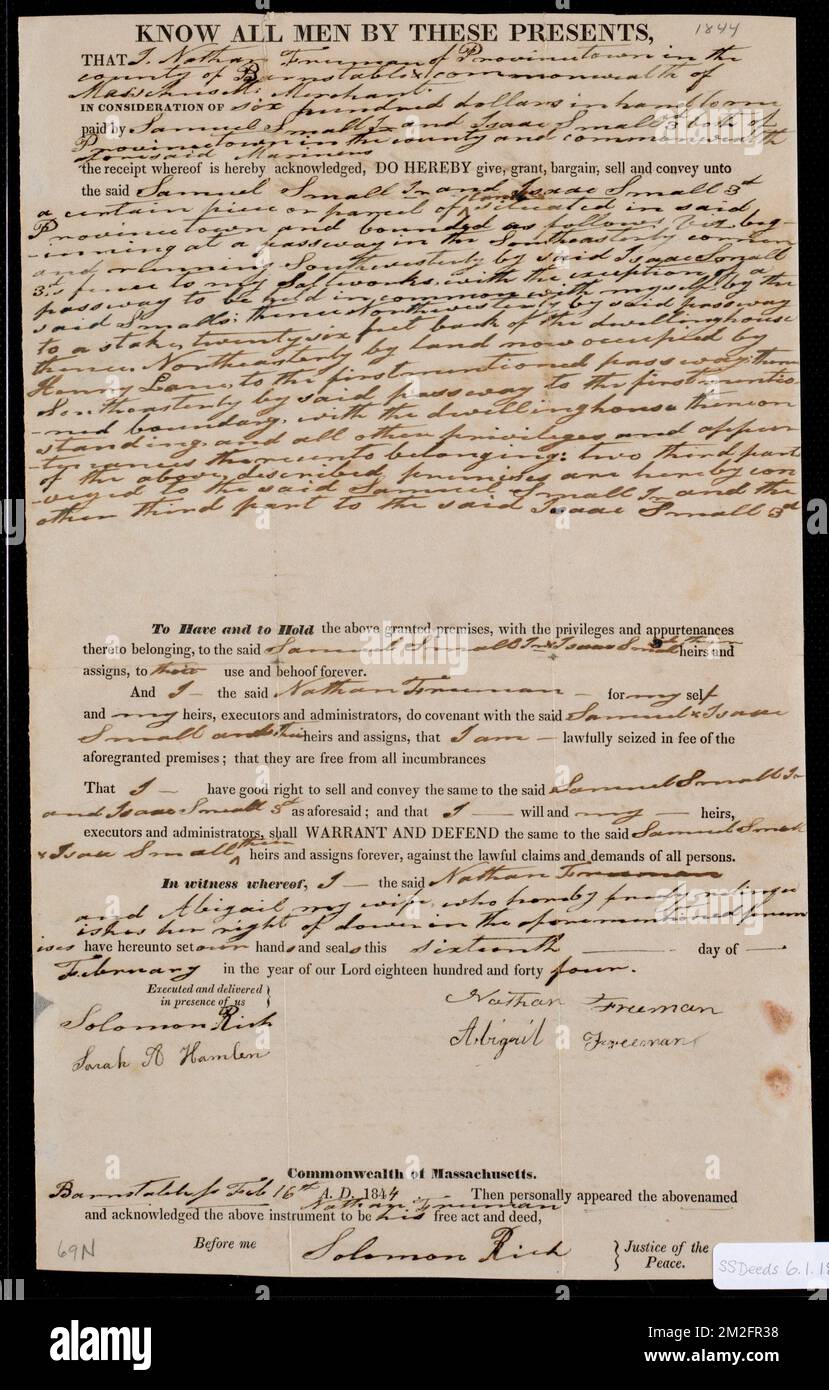 KNOW ALL MEN BY THESE PRESENTS,
1844
THAT I, Nathan Freeman of Provincetown in the
county of Barnstable & commonwealth of
Massachusetts Merchant
IN CONSIDERATION OF six hundred dollars in hand to me
paid by Samuel Small Jr and Isaac Small 3d both of
Provincetown in the county and commonwealth
aforesaid Mariners
the receipt whereof is hereby acknowledged, DO HEREBY give, grant, bargain, sell and convey unto
the said Samuel Small Jr and Isaac Small 3d
a certain piece or parcel of land situated in said
Provincetown and bounded as follows Viz beg-
-inning at a passway in the Southeasterly corner
and running Southwesterly by said Isaac Small
3d,s fence to my Saltworks, with the exception of a
passway to be held in common with myself by the
said Smalls; thence Northwesterly by said passway
to a stake, twenty six feet back of the dwellinghouse
thence Northeasterly by land now occupied by
Henry Lane, to the first mentioned passway; thence
Southeasterly by said passway to the first mentio-
-ned boundary, with the dwellinghouse thereon
standing, and all other privileges and appur-
-tenances thereunto belonging: two third part
of the above described premises are hereby con
veyed to the said Samuel Small Jr and the
other third part to the said Isaac Small 3d
To Have and to Hold the above granted premises, with the privileges and appurtenances
thereto belonging, to the said Samuel Small Jr & Isaac Small 3d their heirs and
assigns, to their use and behoof forever.
And I the said Nathan Freeman for my self
and my heirs, executors and administrators, do covenant with the said Samuel & Isaac
Small and their heirs and assigns, that I am lawfully seized in fee of the
aforegranted premises; that they are free from all incumbrances
That I have good right to sell and convey the same to the said Samuel Small Jr
and Isaac Small 3d as aforesaid; and that I will and my heirs,
executors and administrators, shall WARRANT AND DEFEND the same to the said Samuel Small
& Isaac Small their heirs and assigns forever, against the lawful claims and demands of all persons.
In witness whereof, I the said Nathan Freeman
and Abigail my wife, who hereby freely relinqu
ishes her right of dower in the aforementioned prem
ises have hereunto set our hands and seals this sixteenth day of
February in the year of our Lord eighteen hundred and forty four.
Executed and delivered
in presence of us
Nathan Freeman
Solomon Rich
Abigail Freeman
Sarah A Hamlen
Commonwealth of Massachusetts.
Barnstable ss Feb 16th A. D. 1844 Then personally appeared the abovenamed
Nathan Freeman
and acknowledged the above instrument to be his free act and deed,
Before me Solomon Rich Justice of the
Peace.
69N
SSDeeds 6.1.18
alamy
Image ID: 2M2FR38
www.alamy.com